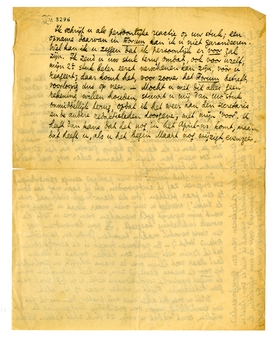 3296
Ik schrijf u als persoonlijke reactie op uw stuk; een
opname daarvan in Forum kan ik u niet garandeeren.
Wel kan ik u zeggen dat ik persoonlijk er voor zal
zijn. Ik zend u uw stuk terug omdat, ook voor uzelf,
mijn 2e stuk beter eerst verschenen kan zijn, vóór u
reageert; daar komt het, voor zoover het Forum betreft,
voorloopig ons op neer. — Mocht u met dit alles geen
rekening willen houden, stuurt u mij dan uw stuk
onmiddellijk terug, opdat ik het weer aan den secretaris
en de andere redactieleden doorgeef, met mijn "voor". U
heeft dan kans dat het nog in het April-nr. komt, maar
dat heeft u, als u het begin Maart nog wijzigt, evenzeer.